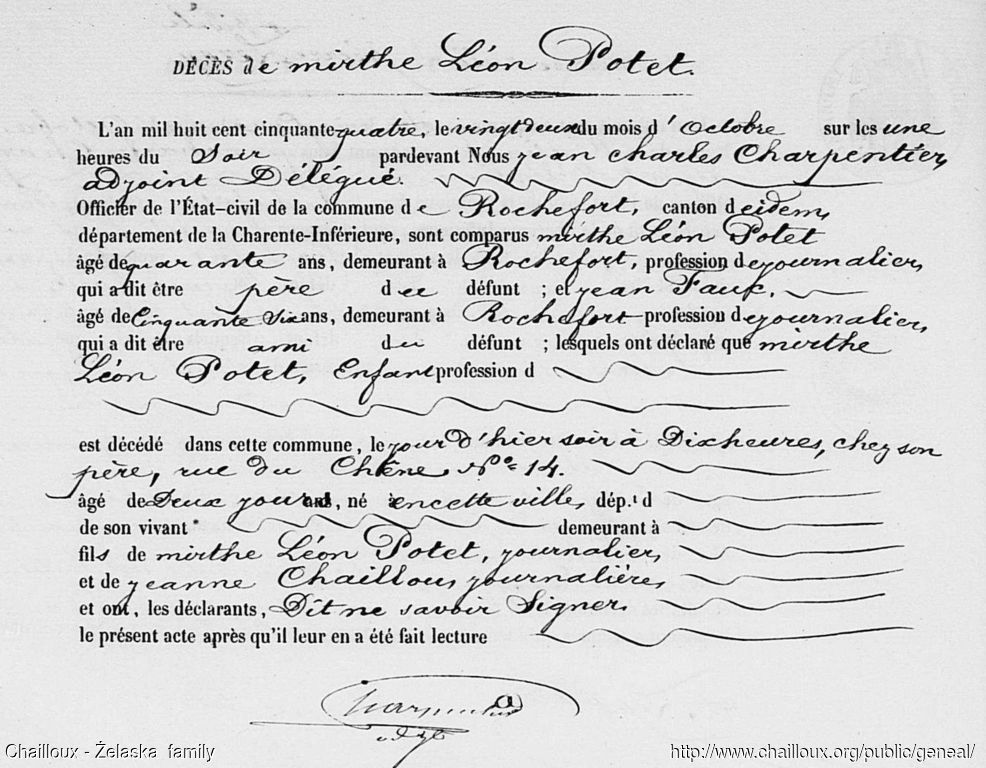 DÉCÈS de mirthe Léon Potet.
L'an mil huit cent cinquante quatre, le vingt deux du mois d'Octobre sur les une
heures du Soir pardevant Nous jean charles Charpentier,
adjoint Délégué.
Officier de l'État-civil de la commune de Rochefort, canton d eidem,
département de la Charente-Inférieure, sont comparus mirthe Léon Potet
âgé de quarante ans, demeurant à Rochefort, profession de journalier,
qui a dit être père du défunt ; et jean Fauk.
âgé de Cinquante Six ans, demeurant à Rochefort profession de journalier,
qui a dit être ami du défunt ; lesquels ont déclaré que mirthe
Léon Potet, Enfant profession d
est décédé dans cette commune, le jour d'hier soir à Dix heures, chez son
père, rue du Chêne No 14.
âgé de Deux jours ans, né à en cette ville, dép.t d
de son vivant demeurant à
fils de mirthe Léon Potet, journalier,
et de jeanne Chailloux, journalière,
et ont, les déclarants, Dit ne savoir Signer.
le présent acte après qu'il leur en a été fait lecture
Chailloux - Żelaska family
http://www.chailloux.org/public/geneal/